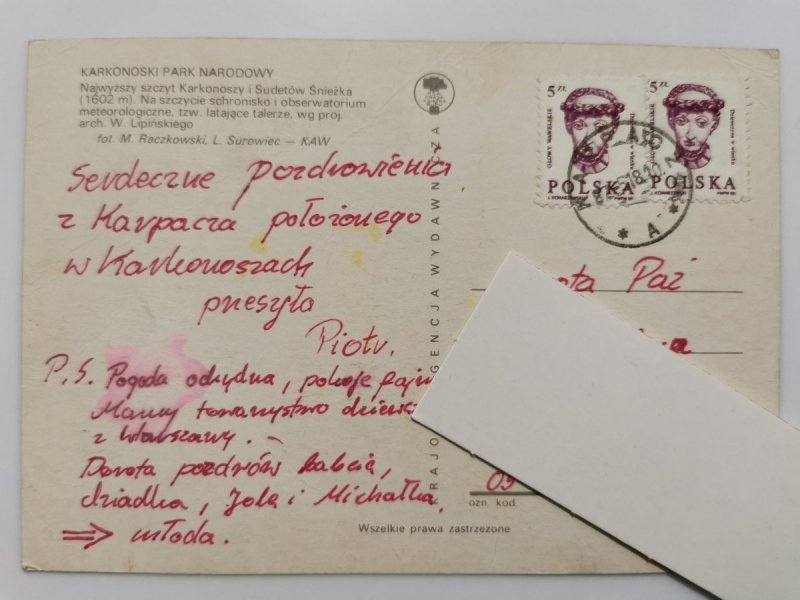 KARKONOSKI PARK NARODOWY
Najwyższy szczyt Karkonoszy i Sudetów Śnieżka
(1602 m). Na szczycie schronisko i obserwatorium
meteorologiczne, tzw. latające talerze, wg proj.
arch. W. Lipińskiego
fot. M. Raczkowski, L. Surowiec — KAW
Serdeczne pozdrowienia
z Karpacza położonego
w Karkonoszach
przesyła
Piotr.
P.S. Pogoda ochydna, pokoje fajn
Mamy towarzystwo dziewcz
z Warszawy. –
Dorota pozdrów babcię,
dziadka, Jolę i Michałka.
⇒ młoda.
KRAJO GENCJA WYDAWNICZA
5 ZŁ
GŁOWY WAWELSKIE
POLSKA
5 ZŁ
GŁOWY WAWELSKIE
Dziewczyna w wianku
POLSKA
A
ta Paź
a
ozn. kod.
Wszelkie prawa zastrzeżone